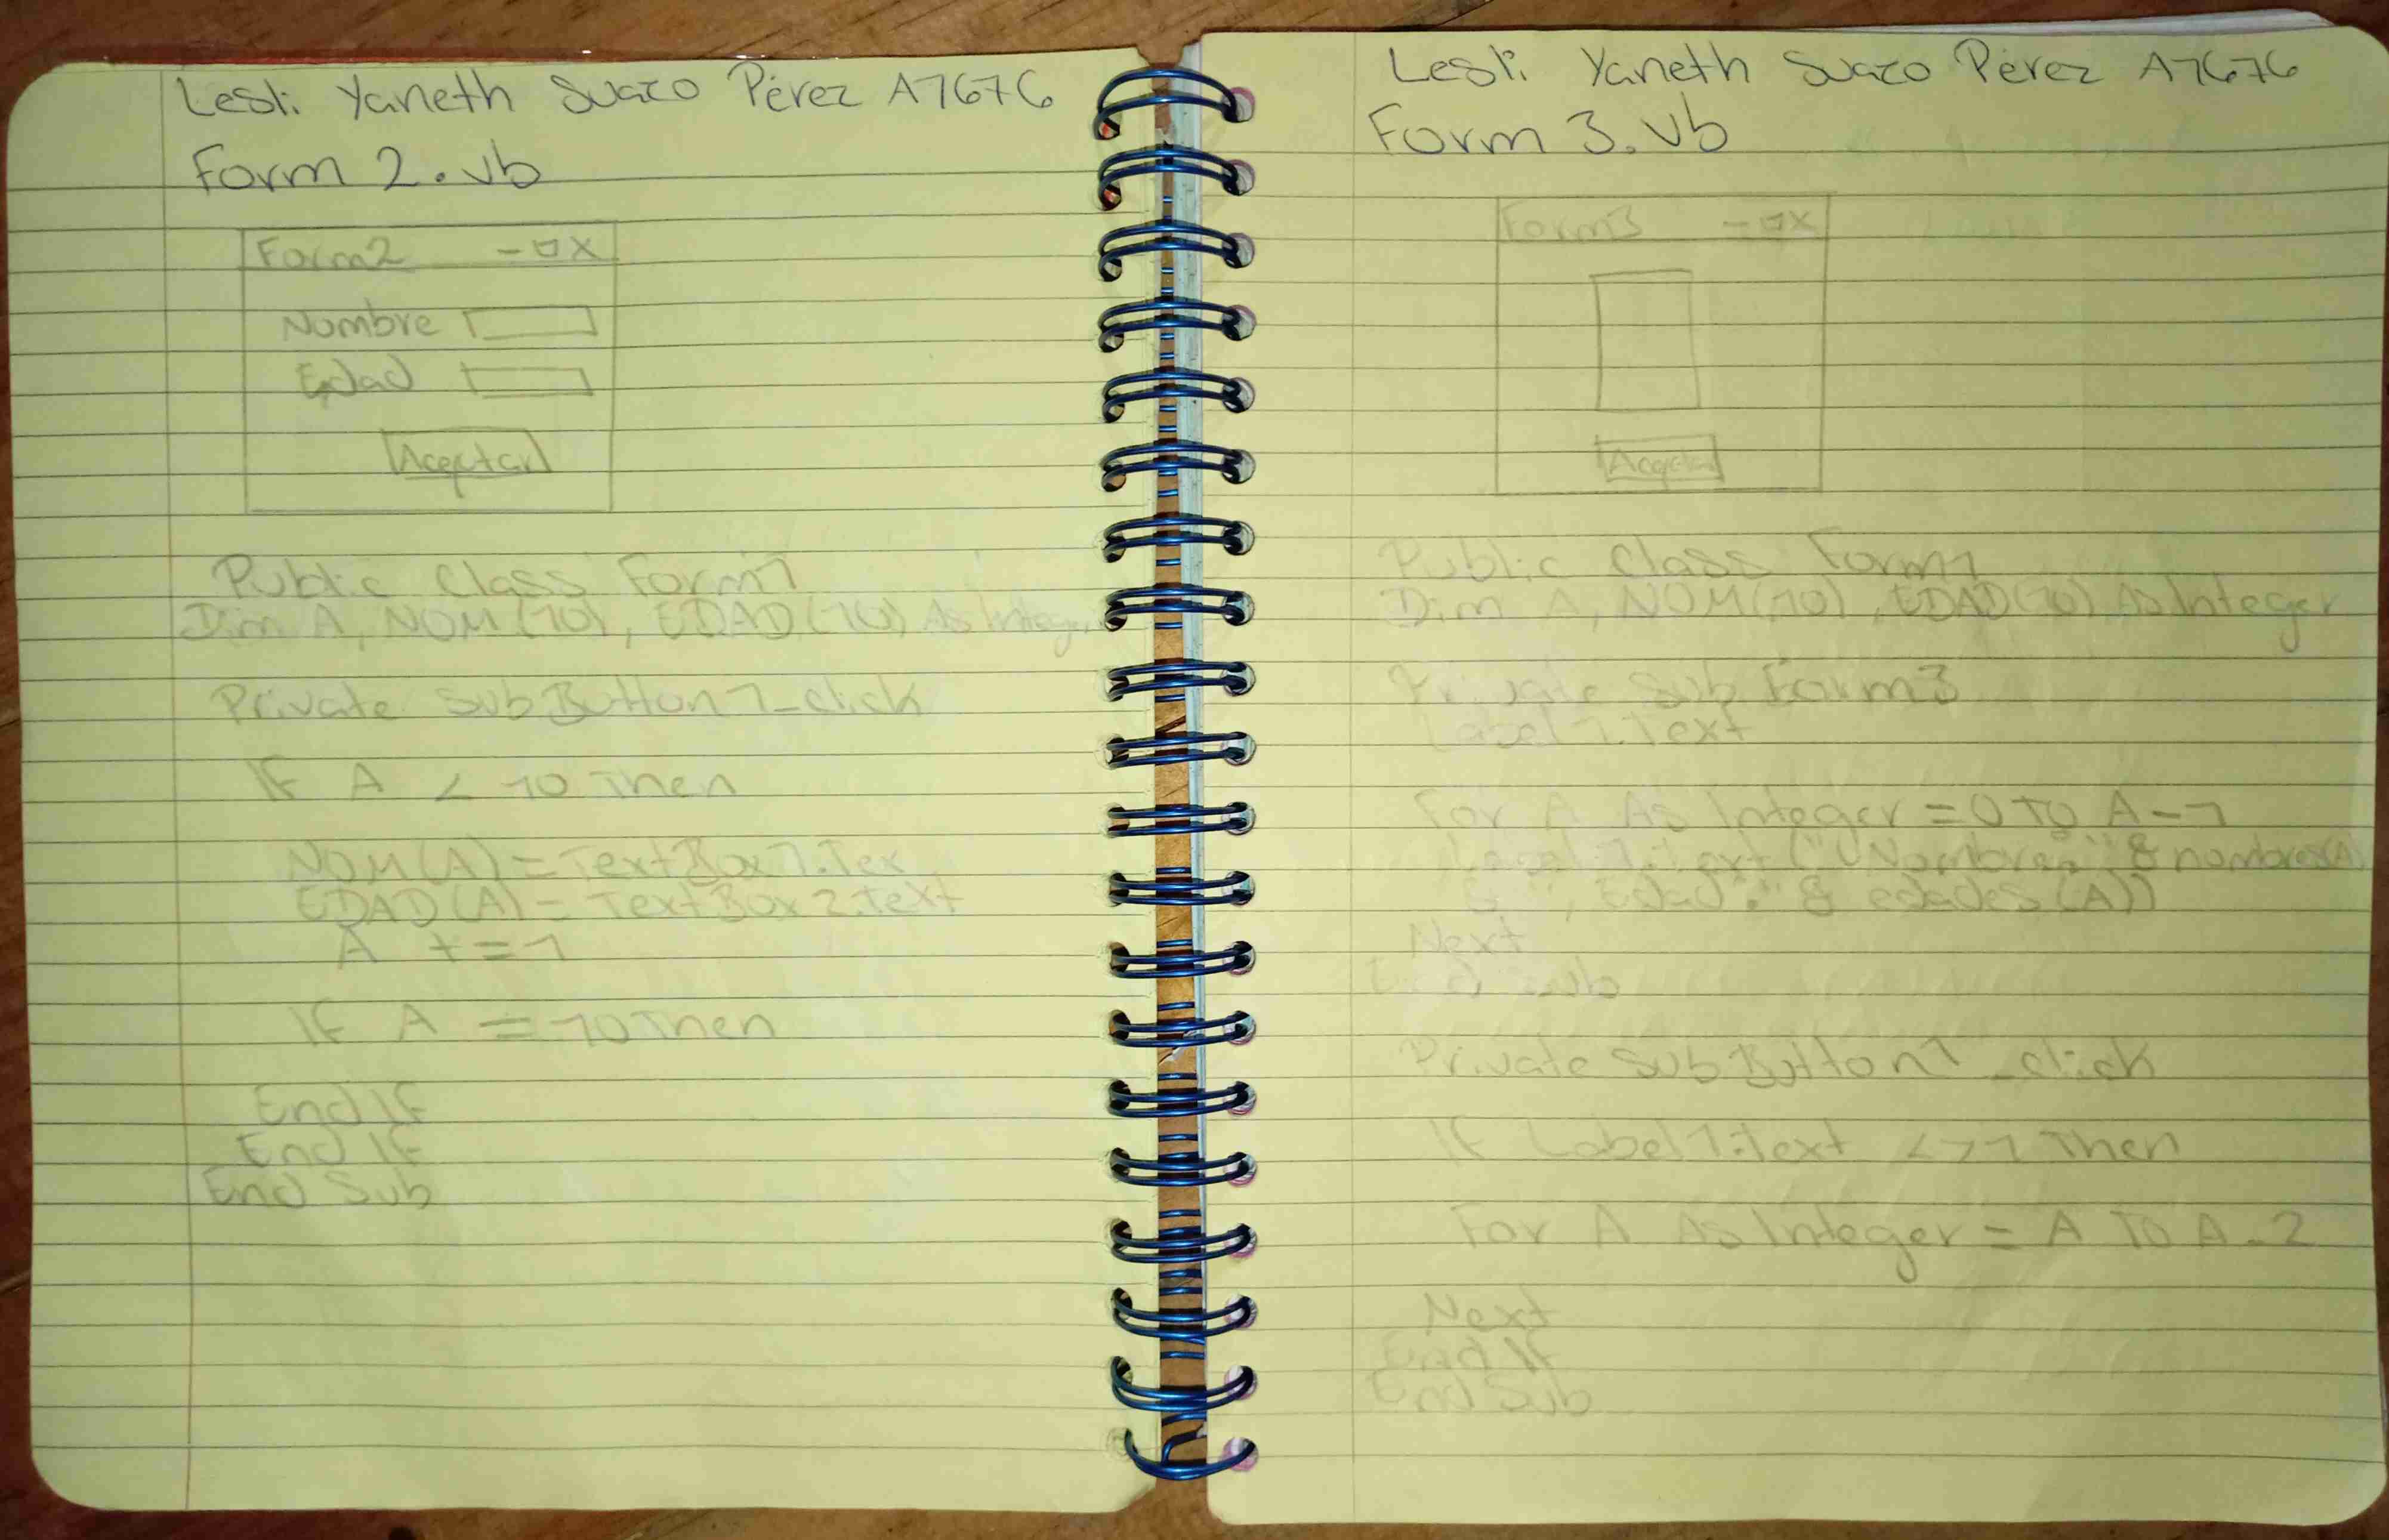 Lesli Yaneth Suazo Pérez A7676
Form 2.vb
Form2 - □ X
Nombre
Edad
Aceptar
Public Class Form1
Dim A, NOM(10), EDAD(10) As Integer
Private Sub Button1_click
If A < 10 Then
NOM(A) = TextBox1.Tex
EDAD(A) = TextBox2.text
A += 1
If A = 10 Then
End If
End If
End Sub
Lesli Yaneth Suazo Pérez A7676
Form 3.vb
Form3 - □ X
Public Class Form1
Dim A, NOM(10), EDAD(10) As Integer
Private Sub Form3
Label1.Text
For A As Integer = 0 To A - 1
Label1.Text ("Nombre: " & nombres(A)
& ", Edad: " & edades(A))
Next
End Sub
Private Sub Button1_click
If Label1.Text <> 1 Then
For A As Integer = A To A - 2
Next
End If
End Sub